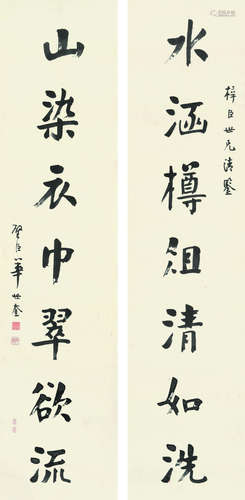 水涵樽俎清如洗
梓臣世兄清鉴
山染衣巾翠欲流
华世奎